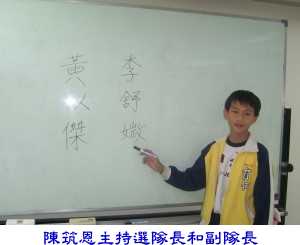 李舒媺
黃以傑
陳筑恩主持選隊長和副隊長